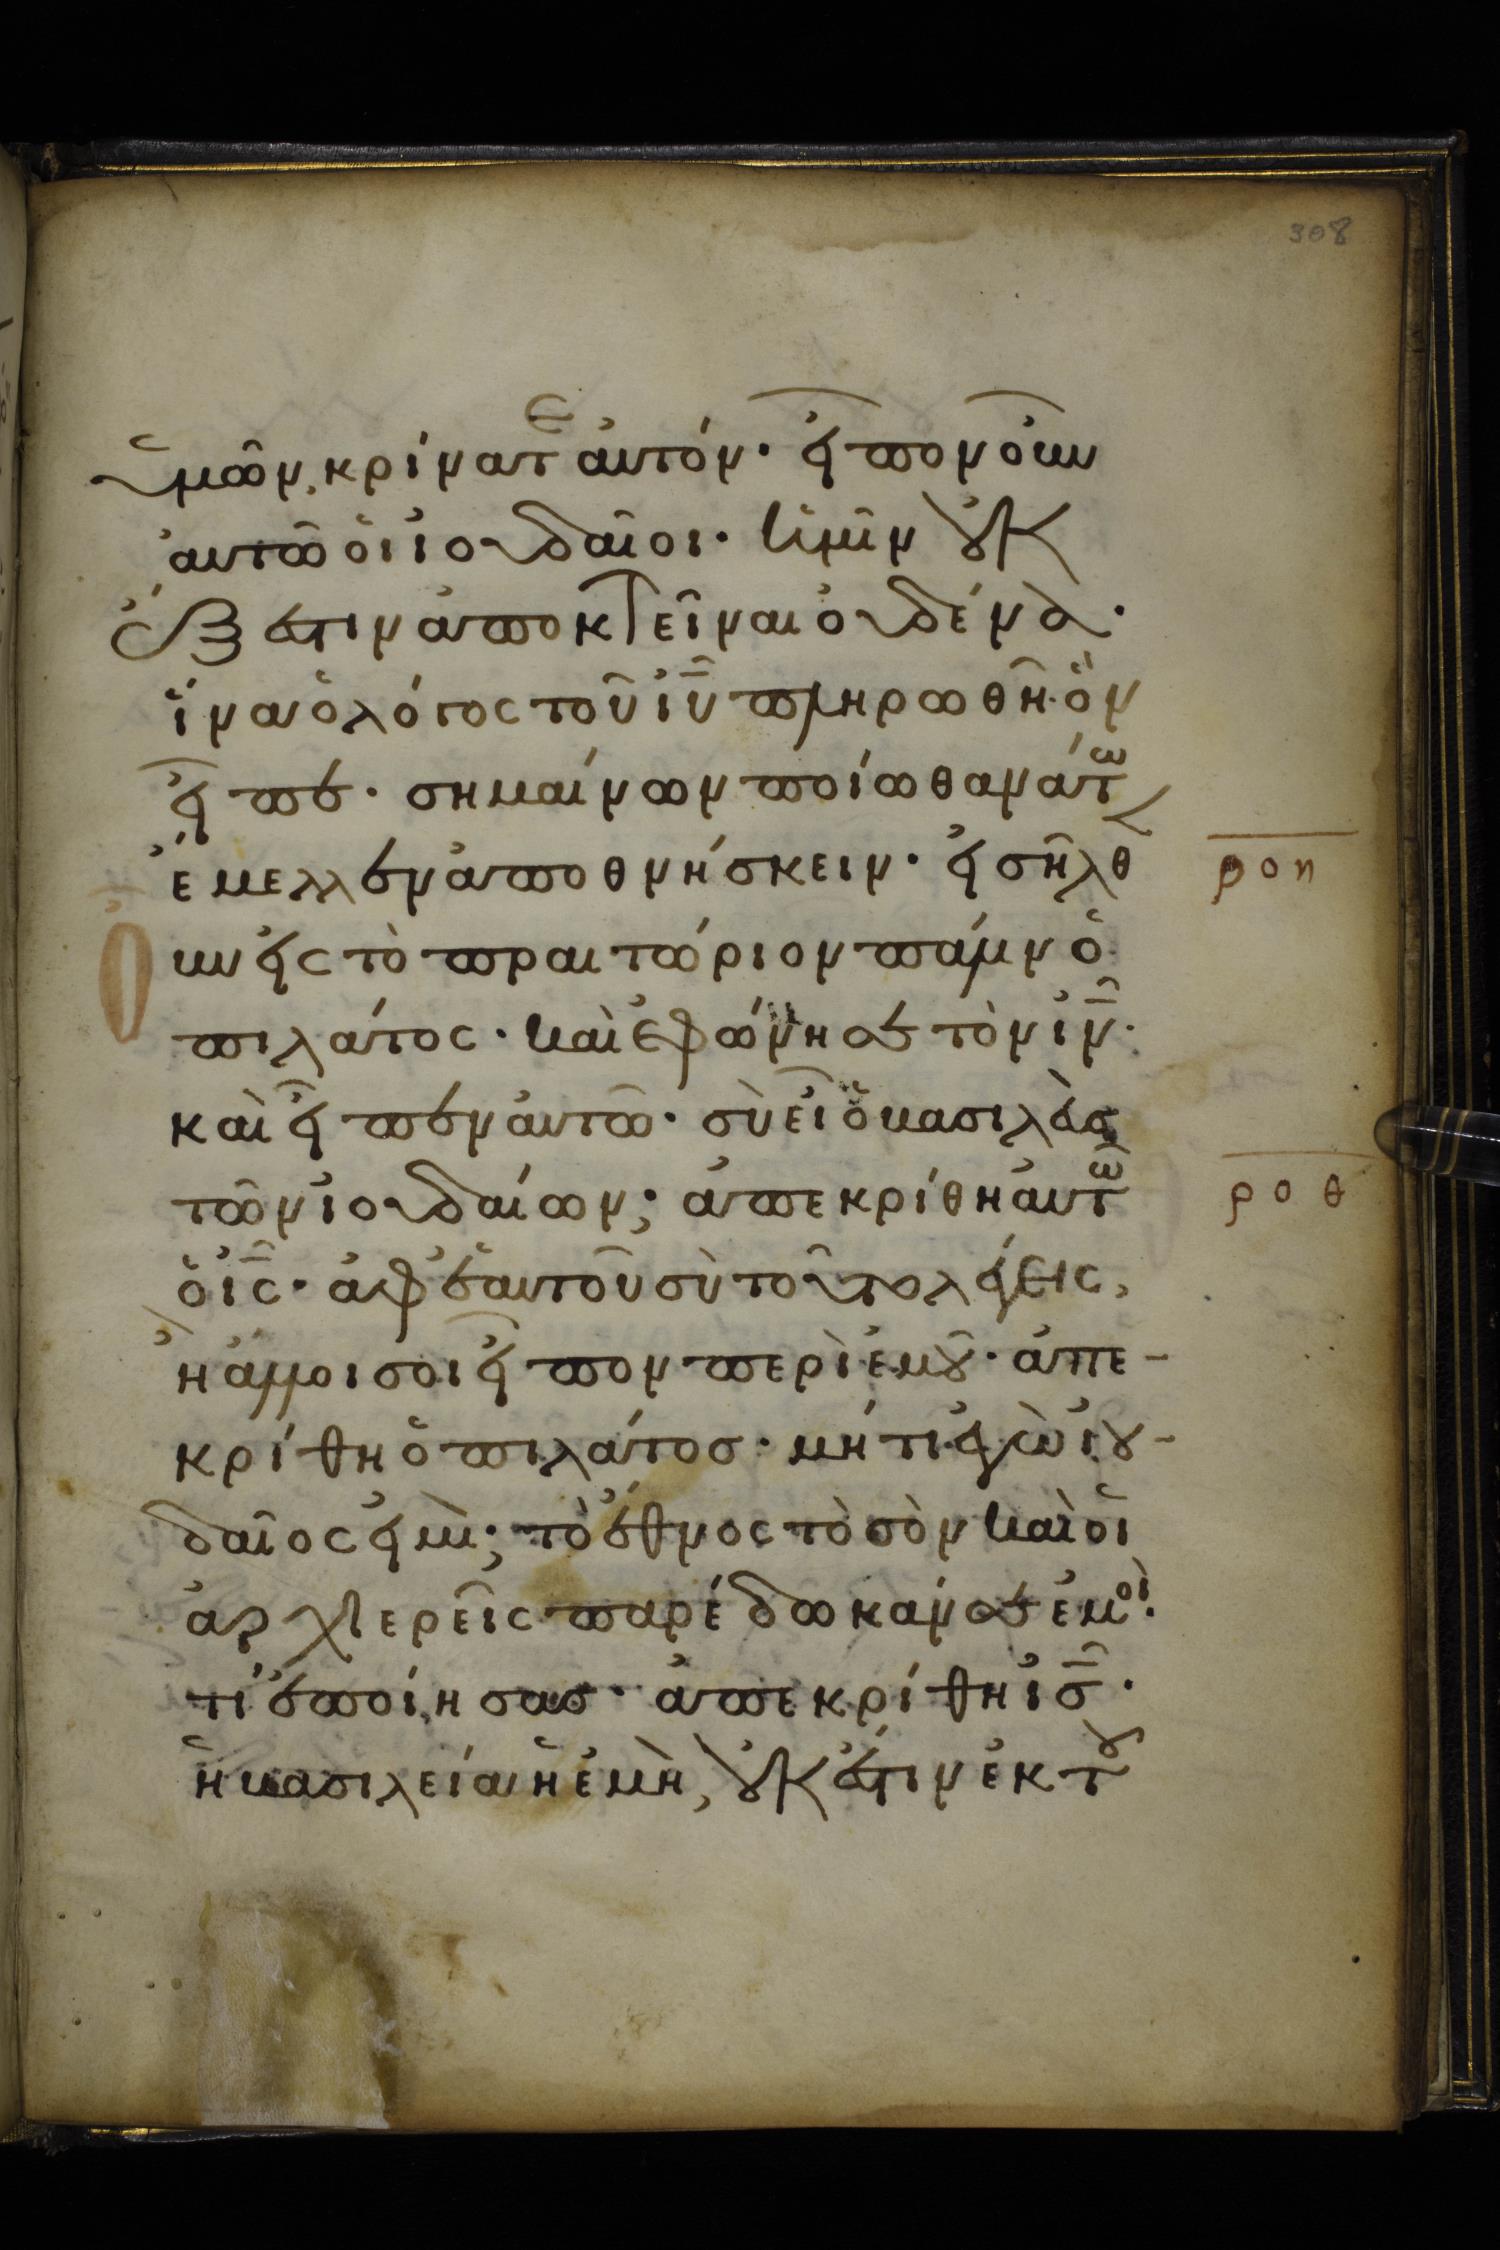 308
ὑμῶν, κρίνατε αὐτόν· εἶπον οὖν
αὐτῶ οἱ ἰουδαῖοι· ἡμῖν οὐκ
ἔξεστιν ἀποκτεῖναι οὐδένα·
ἵνα ὁ λόγος τοῦ ἰῦ πληρωθῆ· ὃν
εἶπε· σημαίνων ποίω θανάτω
ἔμελλεν ἀποθνήσκειν· εἰσῆλθ
ροη
εν εἰς τὸ πραιτώριον πάλιν ὁ
πιλάτος· καὶ ἐφώνησε τὸν ἰν·
καὶ εἶπεν αὐτῶ· σὺ εἶ ὁ βασιλεὺς
τῶν ἰουδαίων; ἀπεκρίθη αὐτῶ
ροθ
ὁ ἰς· ἀφ ἑαυτοῦ σὺ τοῦτο λέγεις,
ἢ ἄλλοι σοι εἶπον περὶ ἐμοῦ· ἀπε-
κρίθη ὁ πιλάτος· μήτι ἐγὼ ἰου-
δαῖος εἰμὶ; τὸ ἔθνος τὸ σὸν καὶ οἱ
ἀρχιερεῖς παρέδωκάν σε ἐμοὶ·
τί ἐποίησας· ἀπεκρίθη ἰς·
ἡ βασιλεία ἡ ἐμὴ, οὐκ ἔστιν ἐκ τοῦ